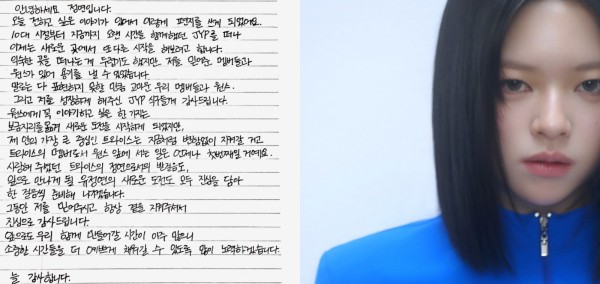 안녕하세요 정연입니다.
오늘 전하고 싶은 이야기가 있어서 이렇게 편지를 쓰게 되었어요..
10대 시절부터 지금까지 오랜 시간을 함께했던 JYP를 떠나
이제는 새로운 곳에서 또 다른 시작을 해보려고 합니다.
익숙한 곳을 떠나는 게 두렵기도 했지만, 저를 믿어준 멤버들과
원스가 있어 용기를 낼 수 있었습니다.
말로는 다 표현하지 못할 만큼 고마운 우리 멤버들과 원스.
그리고 저를 성장하게 해주신 JYP 식구들께 감사드립니다.
원스에게 꼭 이야기하고 싶은 한 가지는
보금자리를 옮겨 새로운 도전을 시작하게 되었지만,
제 안의 가장 큰 중심인 트와이스는 지금처럼 변함없이 지켜갈 거고
트와이스의 멤버로서 원스 앞에 서는 일은 언제나 첫번째일 거예요.
사랑해 주셨던 트와이스의 정연으로서의 반짝임도,
앞으로 만나게 될 유정연의 새로운 도전도 모두 진심을 담아
한 걸음씩 준비해 나가겠습니다.
그동안 저를 믿어주시고 항상 곁을 지켜주셔서
진심으로 감사드립니다.
앞으로도 우리 함께 만들어갈 시간이 아주 많으니
소중한 시간들을 더 예쁘게 채워갈 수 있도록 많이 노력하겠습니다.
늘 감사합니다.